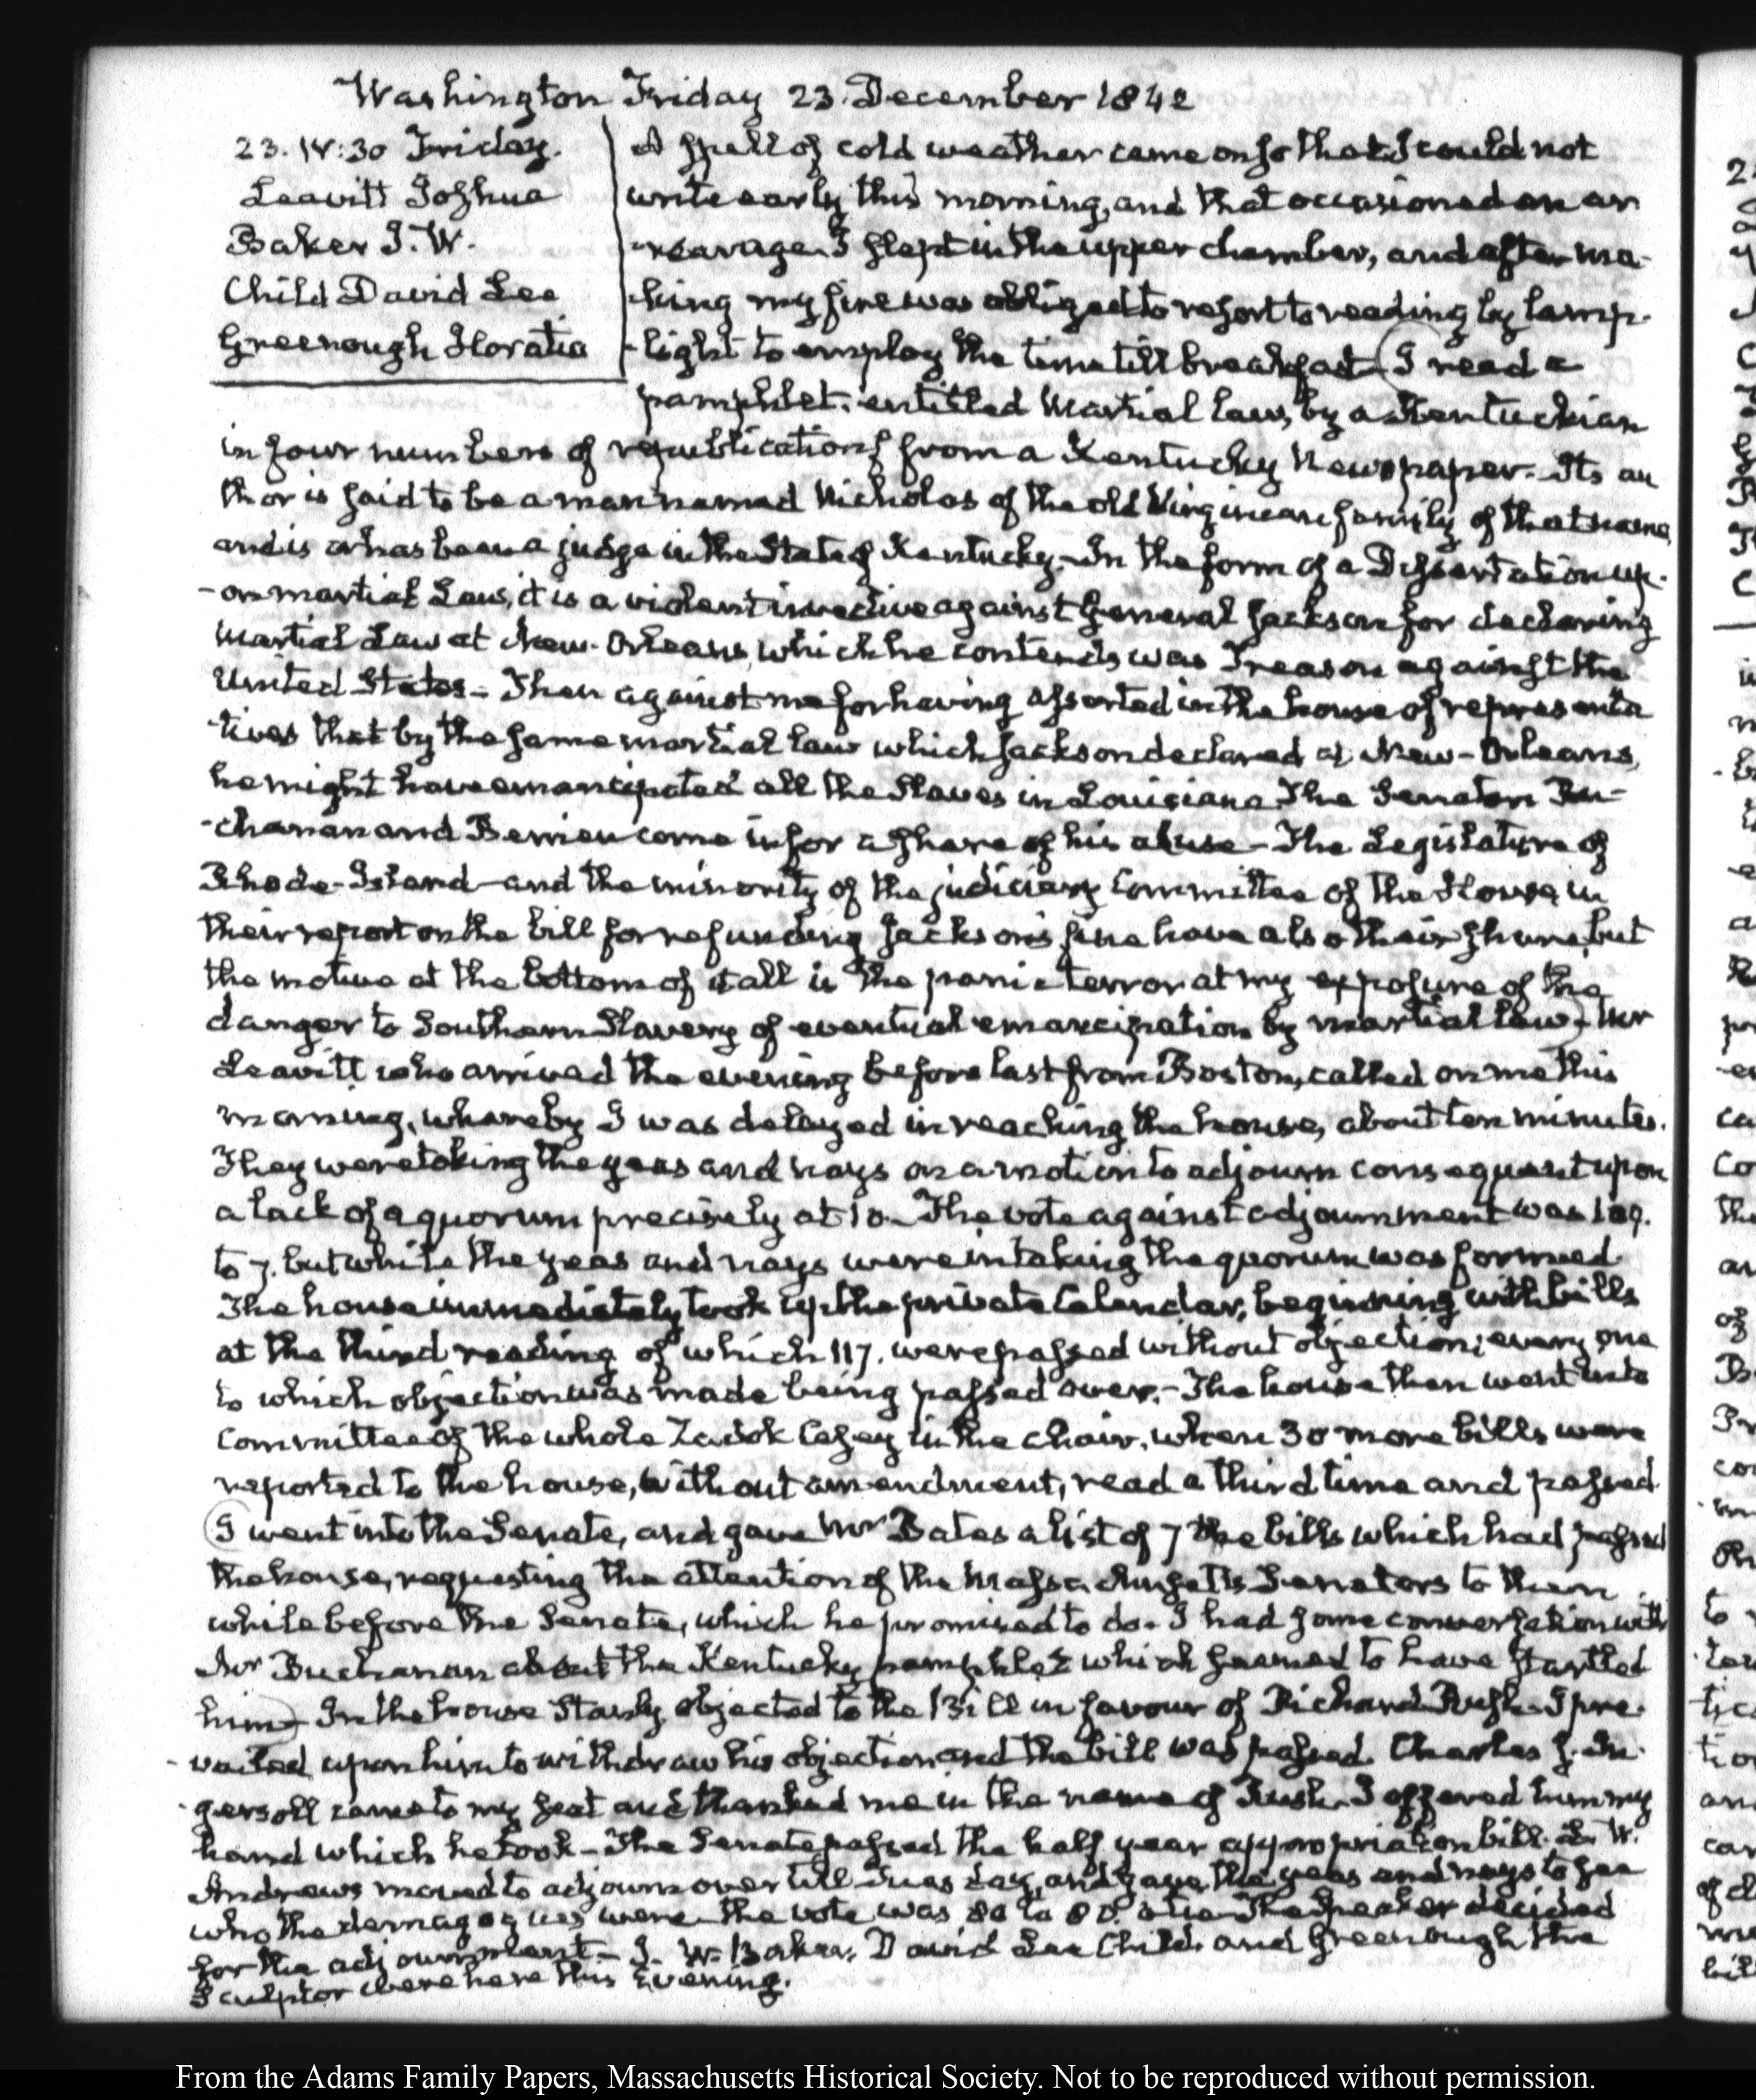 Washington Friday 23. December 1842
23. IV:30 Friday.
Leavitt Joshua
Baker J. W.
Child David Lee
Greenough Horatio
A spell of cold weather came on so that I could not
write early this morning, and that occasioned an ar
-rearage. I slept in the upper chamber, and after ma-
king my fire was obliged to resort to reading by lamp-
-light to employ the time till breakfast. I read a
pamphlet. entitled Martial Law, by a Kentuckian
in four numbers of republications from a Kentucky Newspaper. Its au
thor is said to be a man named Nicholas of the old Virginian family of that name
and is or has been a judge in the State of Kentucky. In the form of a Dissertation up-
-on martial Law, it is a violent invective against General Jackson for declaring
Martial Law at New-Orleans, which he contends was Treason against the
United States - Then against me for having asserted in the house of representa
-tives that by the same martial law which Jackson declared at New-Orleans,
he might have emancipated all the Slaves in Louisiana The Senators Bu-
-chanan and Berrien come in for a share of his abuse - The Legislature of
Rhode-Island and the minority of the judiciary Committee of the House, in
their report on the bill for refunding Jackson's fine have also their share, but
the motive at the bottom of it all is the panic terror at my exposure of the
danger to Southern Slavery of eventual emancipation by martial law - Mr
Leavitt who arrived the evening before last from Boston, called on me this
morning, whereby I was delayed in reaching the house, about ten minutes.
They were taking the yeas and nays on a motion to adjourn consequent upon
a lack of a quorum precisely at 10. The vote against adjournment was 109.
to 7. but while the yeas and nays were in taking the quorum was formed.
The house immediately took up the private Calendar, beginning with bills
at the third reading of which 117. were passed without objection; every one
to which objection was made being passed over. - The house then went into
Committee of the whole Zadok Casey in the chair, when 30 more bills were
reported to the house, without amendment, read a third time and passed
I went into the Senate, and gave Mr Bates a list of 7 the bills which had passed
the house, requesting the attention of the Massachusetts Senators to them
while before the Senate, which he promised to do. I had some conversation with
Mr Buchanan about the Kentucky pamphlet which seemed to have startled
him - In the house Stanly objected to the Bill in favour of Richard Rush. I pre-
-vailed upon him to withdraw his objection, and the bill was passed. Charles J. In-
-gersoll came to my seat and thanked me in the name of Rush. I offered him my
hand which he took - The Senate passed the half year appropriation bill. L. W.
Andrews moved to adjourn over till Tuesday, and gave the yeas and nays to see
who the demagogues were the vote was 80 to 80. a tie The Speaker decided
for the adjournment - J. W. Baker, David Lee Child and Greenough the
Sculptor were here this Evening.
From the Adams Family Papers, Massachusetts Historical Society. Not to be reproduced without permission.